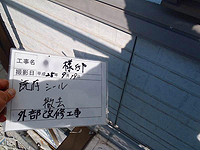 工事名 様邸
撮影日
既存シール
撤去
外部改修工事